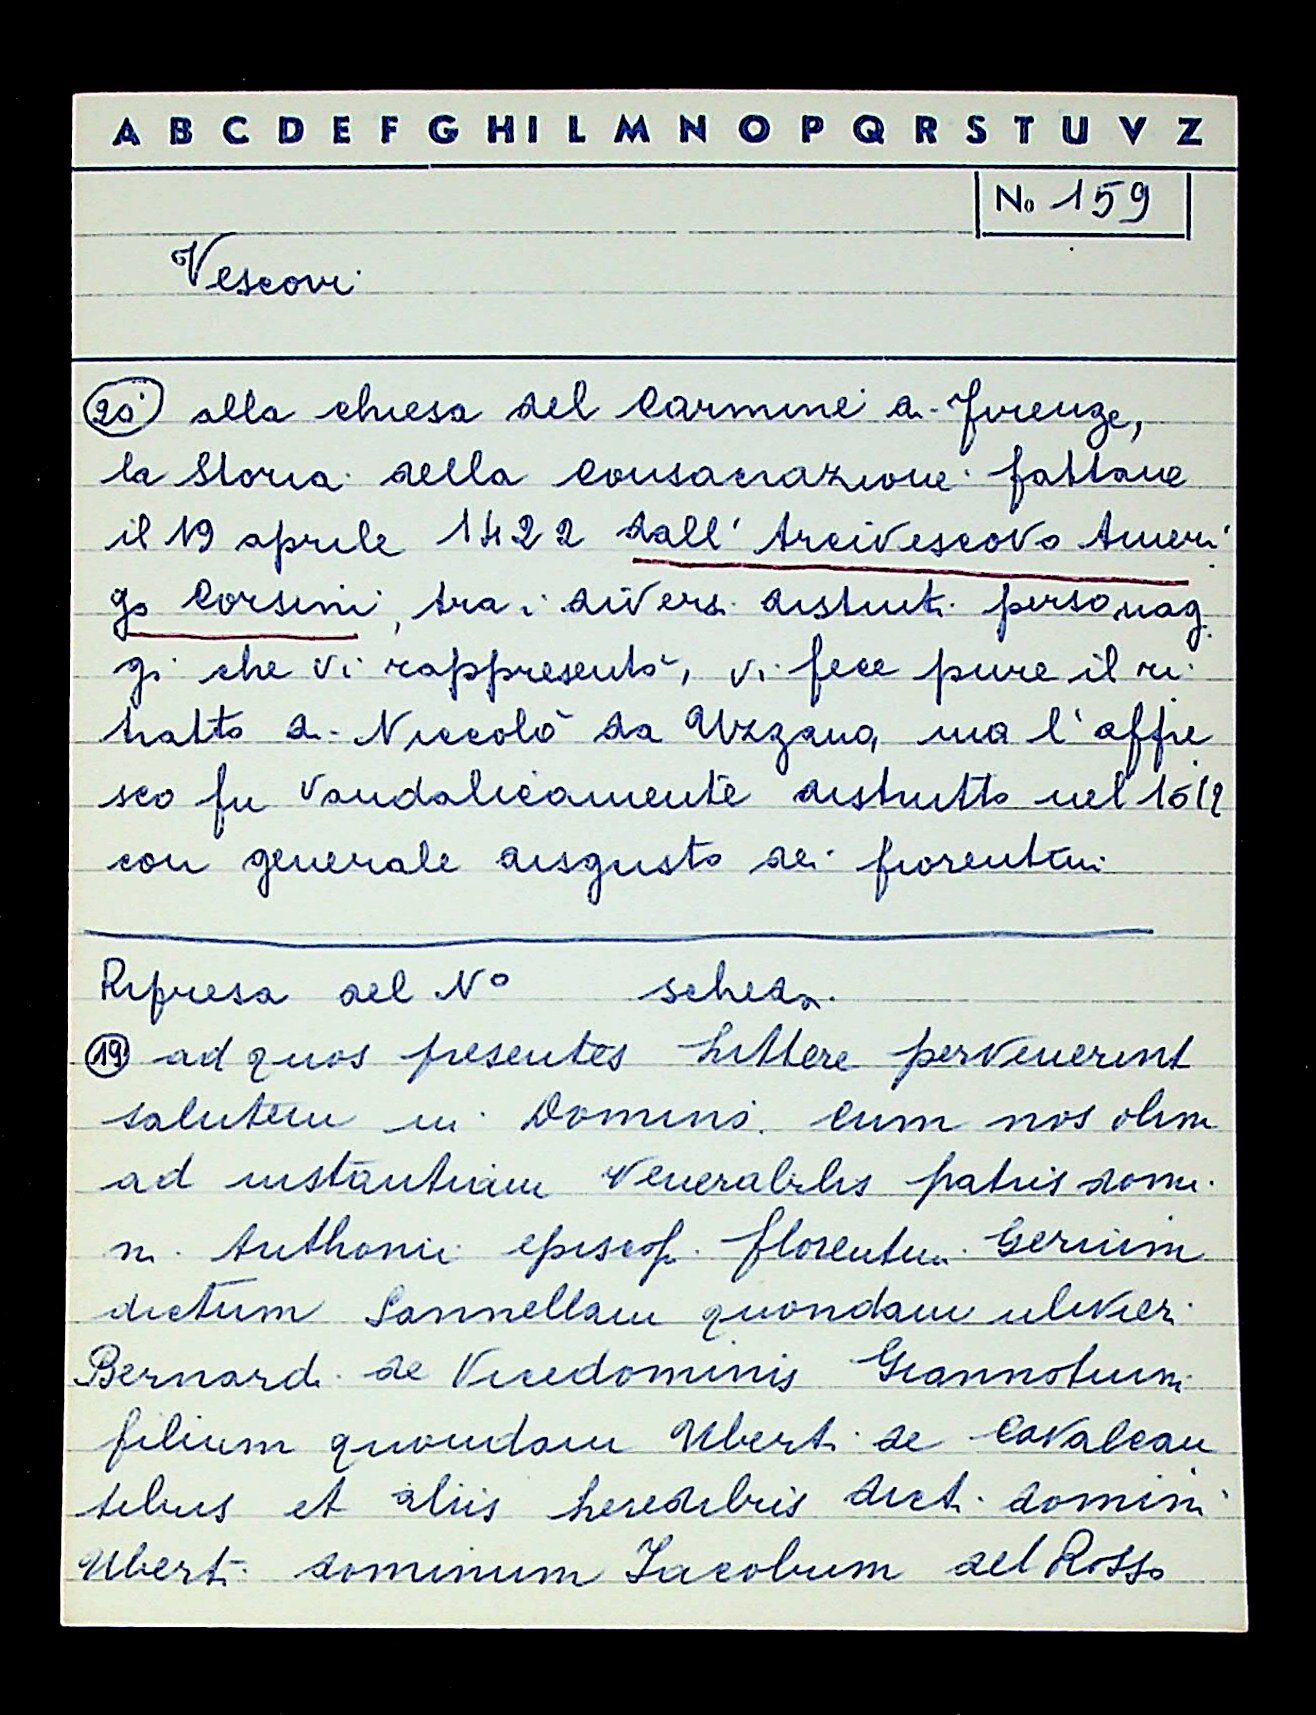 A B C D E F G H I L M N O P Q R S T U V Z
No 159
Vescovi
20 alla chiesa del Carmine di Firenze,
la Storia della Consacrazione fattane
il 19 aprile 1422 dall' Arcivescovo Ameri
go Corsini, tra i diversi distinti personag
gi che vi rappresentò, vi fece pure il ri
tratto di Niccolò da Uzzano, ma l'affre
sco fu vandalicamente distrutto nel 1612
con generale disgusto dei fiorentini
Ripresa del N° scheda
19 ad quos presentes littere pervenerint
salutem in Domino. Cum nos olim
ad instantiam Venerabilis patris domi
n. Anthonii episcop. florentin. Gerium
dictum Sannellam quondam ulivieri
Bernardi de Vicedominis Giannotum
filium quondam Uberti de Cavalcan
tibus et aliis heredibus dicti domini
Uberti dominum Iacobum del Rosso